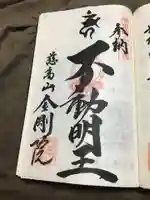 奉納
不動明王
慈高山金剛院